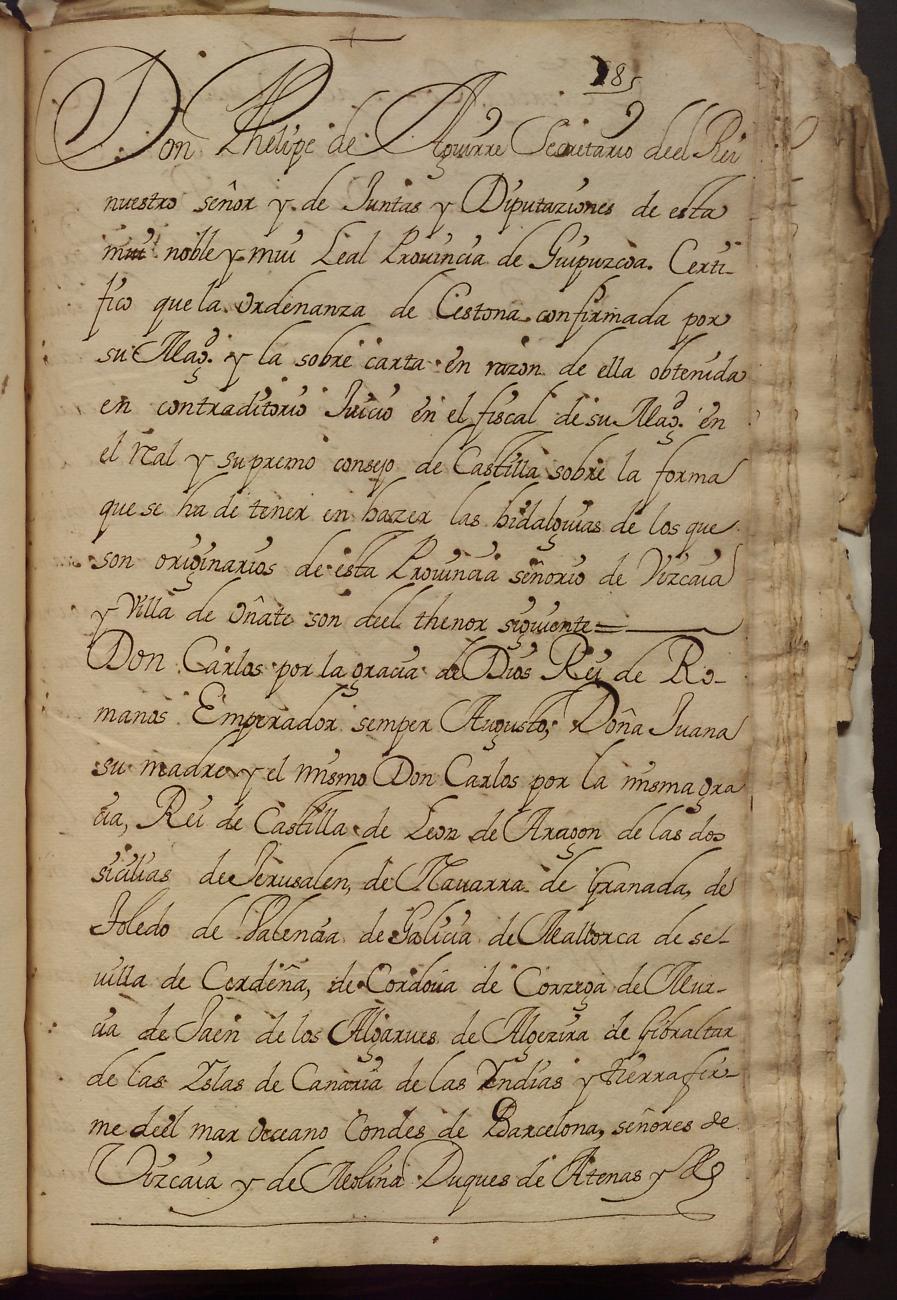 185
Don Phelipe de Aguirre Secretario deel Rei
nuestro señor y de Juntas y Diputaziones de esta
mui noble y mui Leal Prouincia de Guipuzcoa. Certi-
fico que la ordenanza de Cestona confirmada por
su Magd. y la sobre carta en razon de ella obtenida
en contraditorio Juicio en el fiscal de su Magd. en
el real y supremo consejo de Castilla sobre la forma
que se ha de tener en hazer las hidalguias de los que
son originarios de esta Prouincia señorio de Vizcaia
y Villa de oñate son deel thenor siguiente=
Don Carlos por la gracia de Dios Rei de Ro-
manos Emperador semper Augusto, Doña Juana
su madre y el mismo Don Carlos por la misma gra
cia, Rei de Castilla de Leon de Aragon de las dos
sicilias de Jerusalen, de Nauarra de Granada, de
Toledo de Valencia de Galicia de Mallorca de se-
uilla de Cerdeña, de Cordoua de Corzega de Mur-
cia de Jaen de los Algarues de Algezira de Gibraltar
de las Yslas de Canaria de las Yndias y tierra fir-
me deel mar occeano Condes de Barcelona, señores de
Vizcaia y de Molina Duques de Atenas y